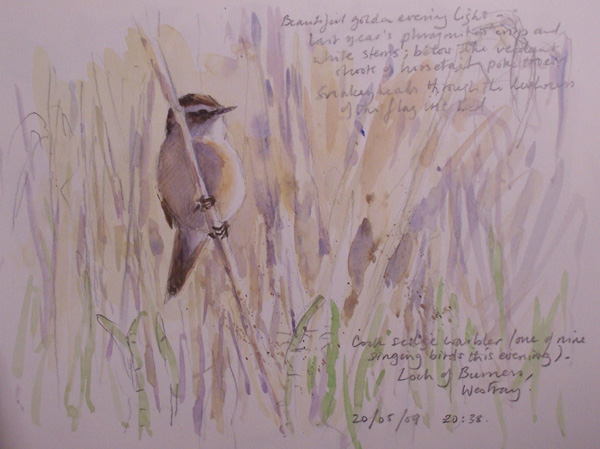 Beautiful golden evening light -
last year's phragmites crisp and
white stems; below the verdant
shoots of horsetail poke their
snakey heads through the darkness
of the flag iris bed
Cock sedge warbler (one of nine
singing birds this evening).
Loch of Burness,
Westray.
20/05/09 20:38.